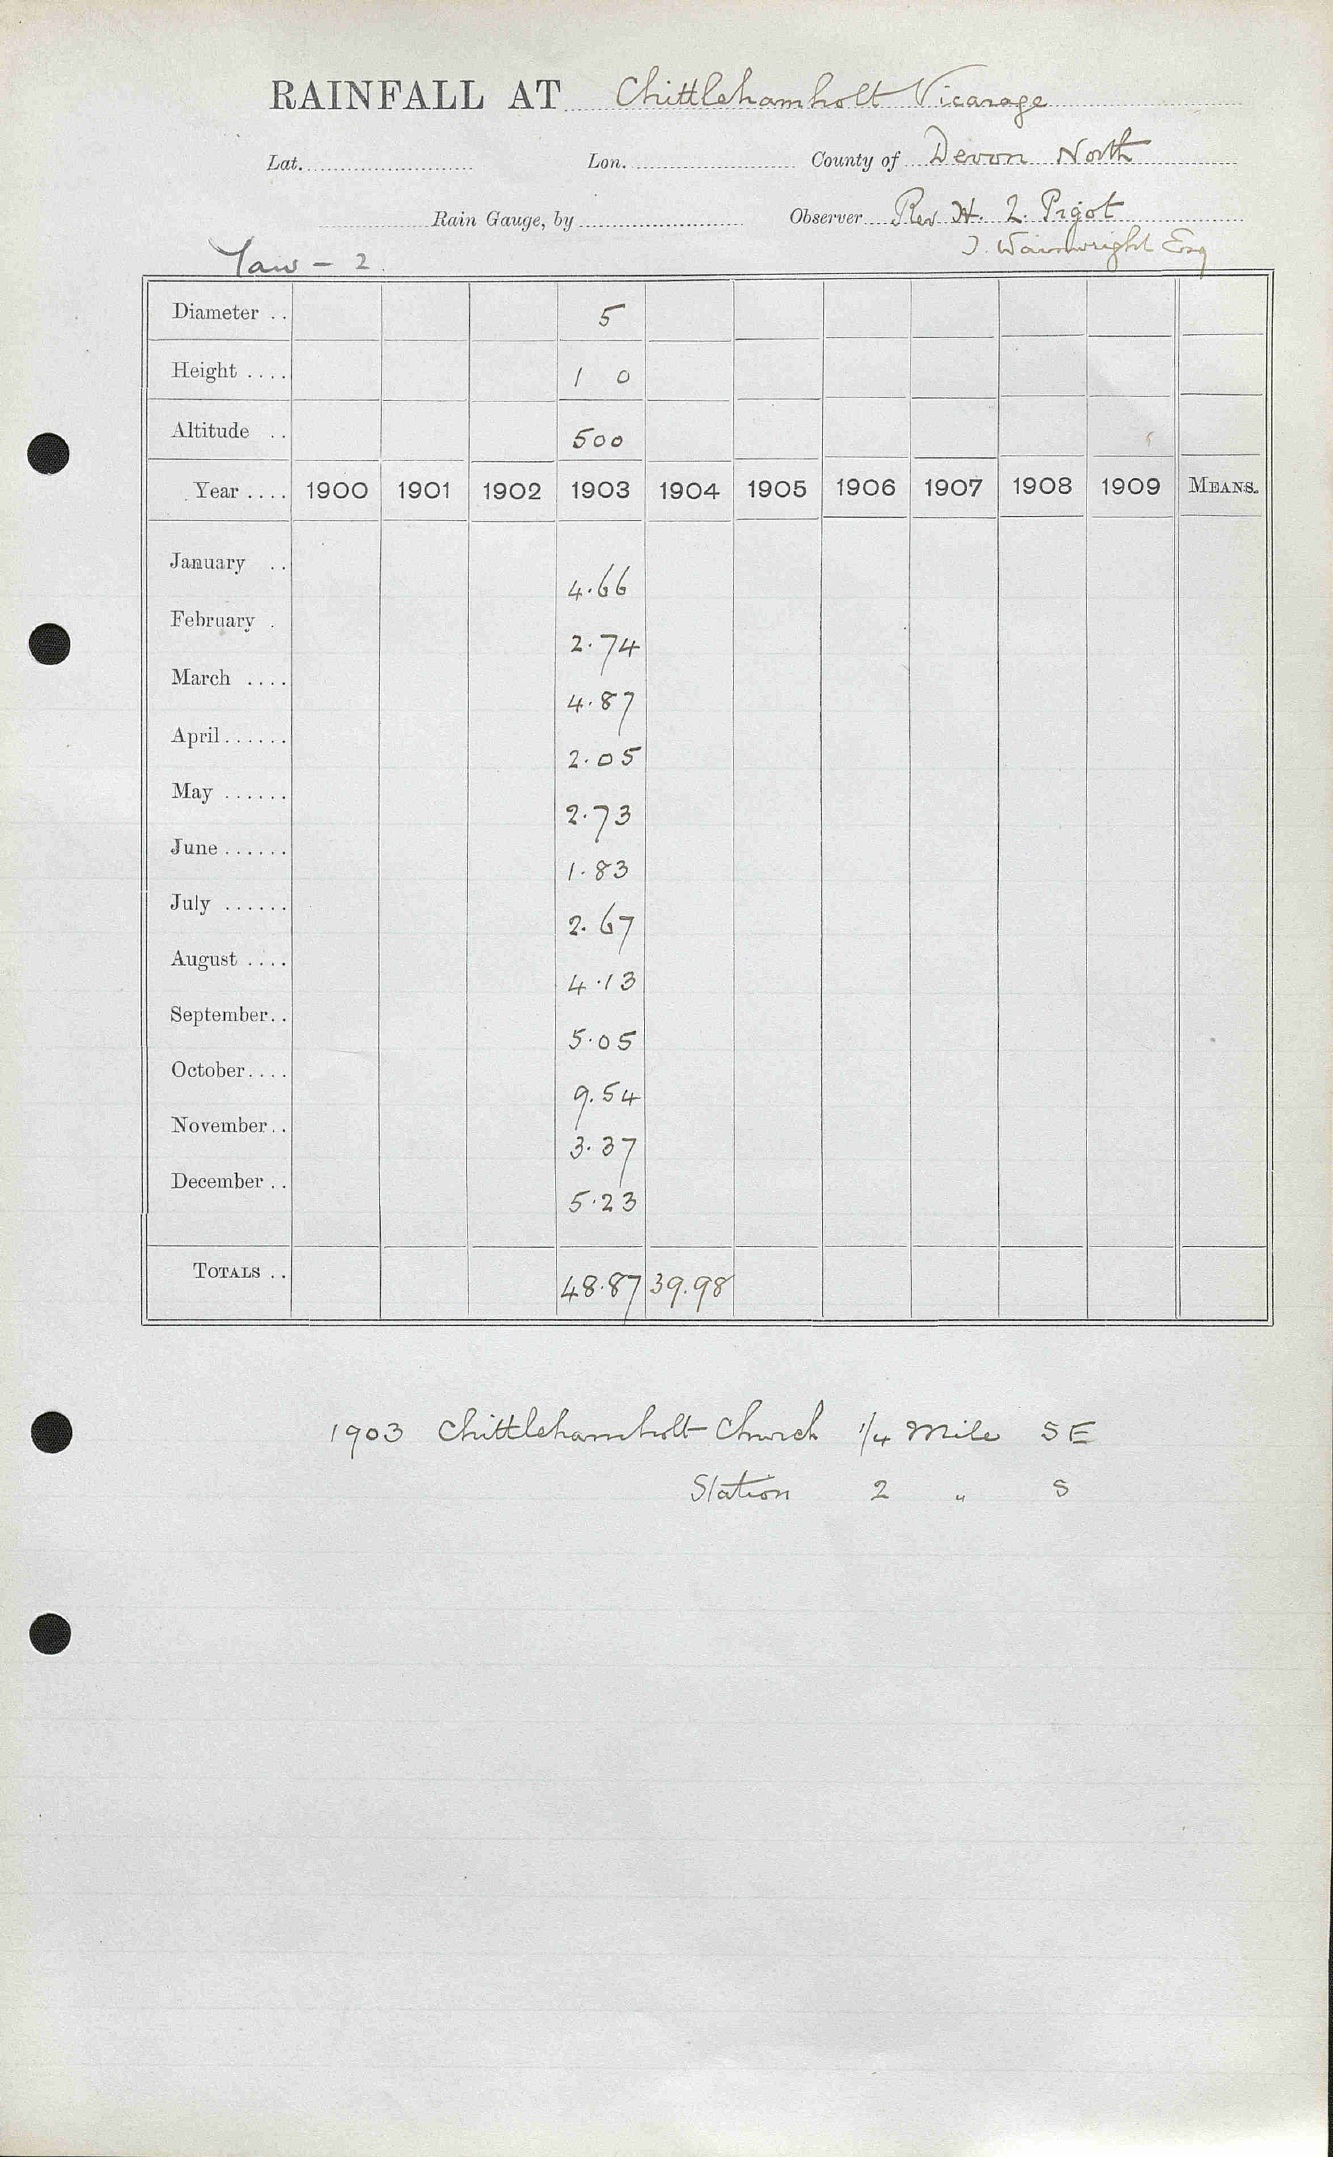 RAINFALL AT Chittlehamholt Vicarage
Lat. Lon. County of Devon North
Rain Gauge, by Observer Rev H. L. Pigot
J. Wainwright Esq
Taw - 2.
Diameter .. 5
Height .... 1 0
Altitude .. 500
Year .... 1900 1901 1902 1903 1904 1905 1906 1907 1908 1909 MEANS.
January .. 4.66
February . 2.74
March .... 4.87
April...... 2.05
May ...... 2.73
June ...... 1.83
July ...... 2.67
August .... 4.13
September.. 5.05
October.... 9.54
November.. 3.37
December .. 5.23
TOTALS .. 48.87 39.98
1903 Chittlehamholt Church 1/4 Mile SE
Station 2 " S